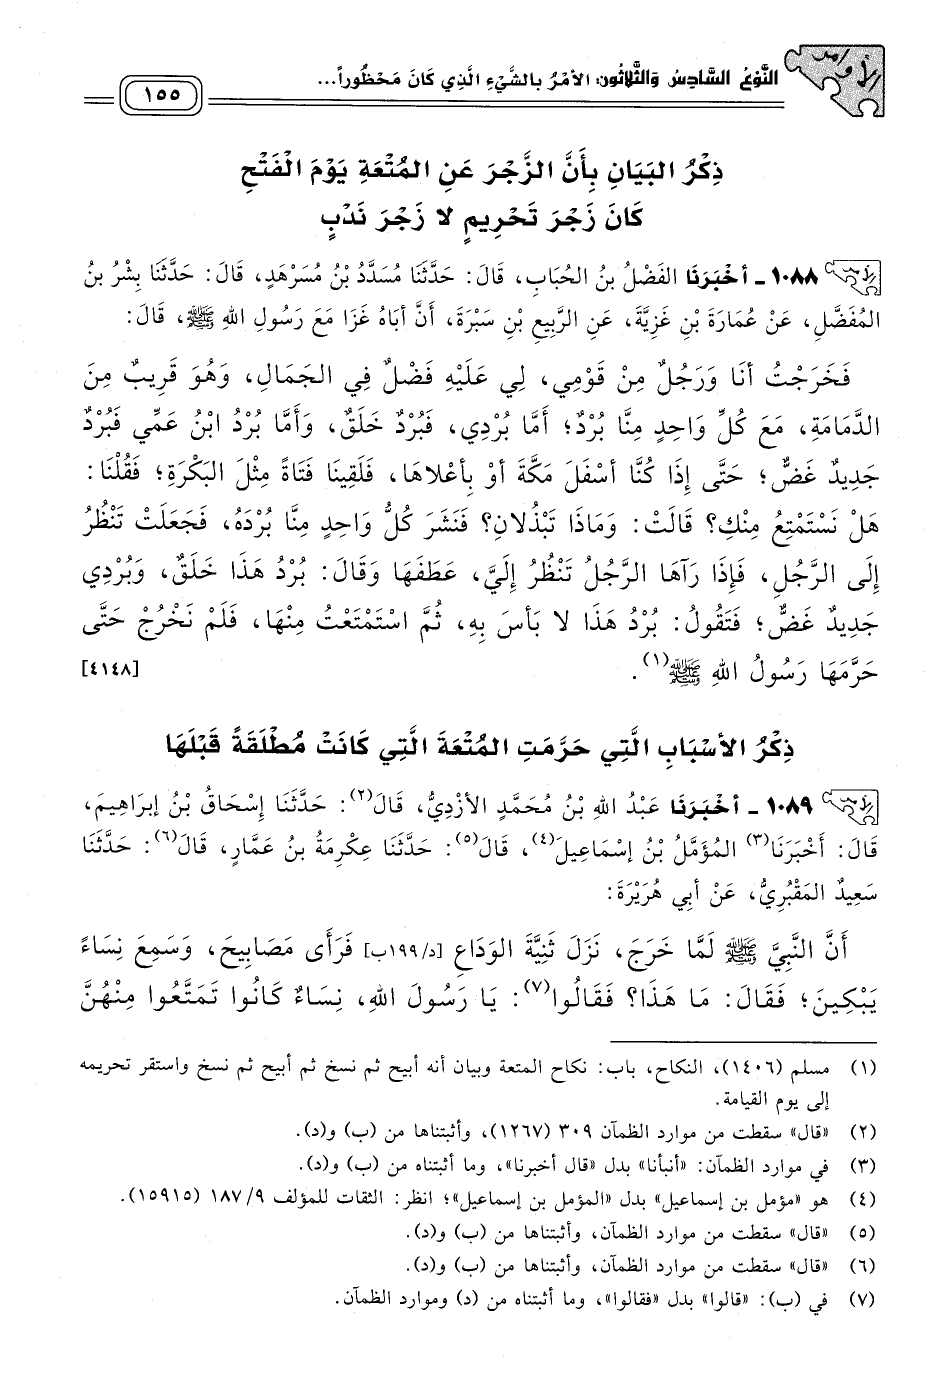 الأوامر
النَّوْعُ السَّادِسُ وَالثَّلاثُون: الأَمْرُ بِالشَّيْءِ الَّذِي كَانَ مَحْظُوراً...
١٥٥
ذِكْرُ البَيَانِ بِأَنَّ الزَّجْرَ عَنِ المُتْعَةِ يَوْمَ الْفَتْحِ
كَانَ زَجْرَ تَحْرِيمٍ لا زَجْرَ نَدْبٍ
١٠٨٨ ـ أَخْبَرَنَا الفَضْلُ بنُ الحُبَابِ، قَالَ: حَدَّثَنَا مُسَدَّدُ بْنُ مُسَرْهَدٍ، قَالَ: حَدَّثَنَا بِشْرُ بنُ
المُفَضَّلِ، عَنْ عُمَارَةَ بْنِ غَزِيَّةَ، عَنِ الرَّبِيعِ بْنِ سَبْرَةَ، أَنَّ أَبَاهُ غَزَا مَعَ رَسُولِ اللهِ ﷺ، قَالَ:
فَخَرَجْتُ أَنَا وَرَجُلٌ مِنْ قَوْمِي، لِي عَلَيْهِ فَضْلٌ فِي الجَمَالِ، وَهُوَ قَرِيبٌ مِنَ
الدَّمَامَةِ، مَعَ كُلِّ وَاحِدٍ مِنَّا بُرْدٌ؛ أَمَّا بُرْدِي، فَبُرْدٌ خَلَقٌ، وَأَمَّا بُرْدُ ابْنُ عَمِّي فَبُرْدٌ
جَدِيدٌ غَضٌّ؛ حَتَّى إِذَا كُنَّا أَسْفَلَ مَكَّةَ أَوْ بِأَعْلاهَا، فَلَقِينَا فَتَاةً مِثْلَ البَكْرَةِ؛ فَقُلْنَا:
هَلْ نَسْتَمْتِعُ مِنْكِ؟ قَالَتْ: وَمَاذَا تَبْذُلانِ؟ فَنَشَرَ كُلُّ وَاحِدٍ مِنَّا بُرْدَهُ، فَجَعَلَتْ تَنْظُرُ
إِلَى الرَّجُلِ، فَإِذَا رَآهَا الرَّجُلُ تَنْظُرُ إِلَيَّ، عَطَفَهَا وَقَالَ: بُرْدُ هَذَا خَلَقٌ، وَبُرْدِي
جَدِيدٌ غَضٌّ؛ فَتَقُولُ: بُرْدُ هَذَا لا بَأسَ بِهِ، ثُمَّ اسْتَمْتَعْتُ مِنْهَا، فَلَمْ نَخْرُجْ حَتَّى
حَرَّمَهَا رَسُولُ اللهِ ﷺ(١). [٤١٤٨]
ذِكْرُ الأَسْبَابِ الَّتِي حَرَّمَتِ المُتْعَةَ الَّتِي كَانَتْ مُطْلَقَةً قَبْلَهَا
١٠٨٩ ـ أَخْبَرَنَا عَبْدُ اللهِ بْنُ مُحَمَّدٍ الأَزْدِيُّ، قَالَ(٢): حَدَّثَنَا إِسْحَاقُ بْنُ إِبْرَاهِيمَ،
قَالَ: أَخْبَرَنَا(٣) المُؤَمَّلُ بْنُ إِسْمَاعِيلَ(٤)، قَالَ(٥): حَدَّثَنَا عِكْرِمَةُ بنُ عَمَّارٍ، قَالَ(٦): حَدَّثَنَا
سَعِيدٌ المَقْبُرِيُّ، عَنْ أَبِي هُرَيْرَةَ:
أَنَّ النَّبِيَّ ﷺ لَمَّا خَرَجَ، نَزَلَ ثَنِيَّةَ الوَدَاعِ [د/١٩٩ب] فَرَأَى مَصَابِيحَ، وَسَمِعَ نِسَاءً
يَبْكِينَ؛ فَقَالَ: مَا هَذَا؟ فَقَالُوا(٧): يَا رَسُولَ اللهِ، نِسَاءٌ كَانُوا تَمَتَّعُوا مِنْهُنَّ
(١) مسلم (١٤٠٦)، النكاح، باب: نكاح المتعة وبيان أنه أبيح ثم نسخ ثم أبيح ثم نسخ واستقر تحريمه
إلى يوم القيامة.
(٢) «قال» سقطت من موارد الظمآن ٣٠٩ (١٢٦٧)، وأثبتناها من (ب) و(د).
(٣) في موارد الظمآن: «أنبأنا» بدل «قال أخبرنا»، وما أثبتناه من (ب) و(د).
(٤) هو «مؤمل بن إسماعيل» بدل «المؤمل بن إسماعيل»؛ انظر: الثقات للمؤلف ٩/ ١٨٧ (١٥٩١٥).
(٥) «قال» سقطت من موارد الظمآن، وأثبتناها من (ب) و(د).
(٦) «قال» سقطت من موارد الظمآن، وأثبتناها من (ب) و(د).
(٧) في (ب): «قالوا» بدل «فقالوا»، وما أثبتناه من (د) وموارد الظمآن.